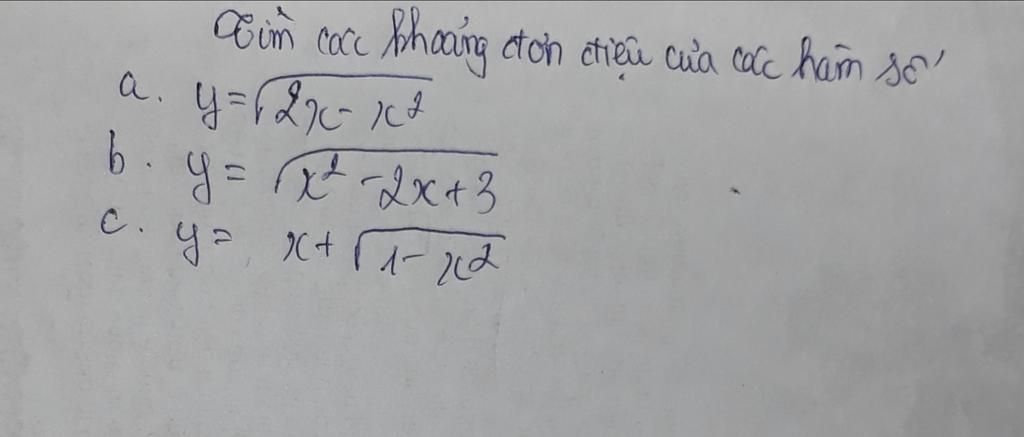 Tìm các khoảng đơn điệu của các hàm số
a. y = √2x - x²
b. y = √x² - 2x + 3
c. y = x + √1 - x²